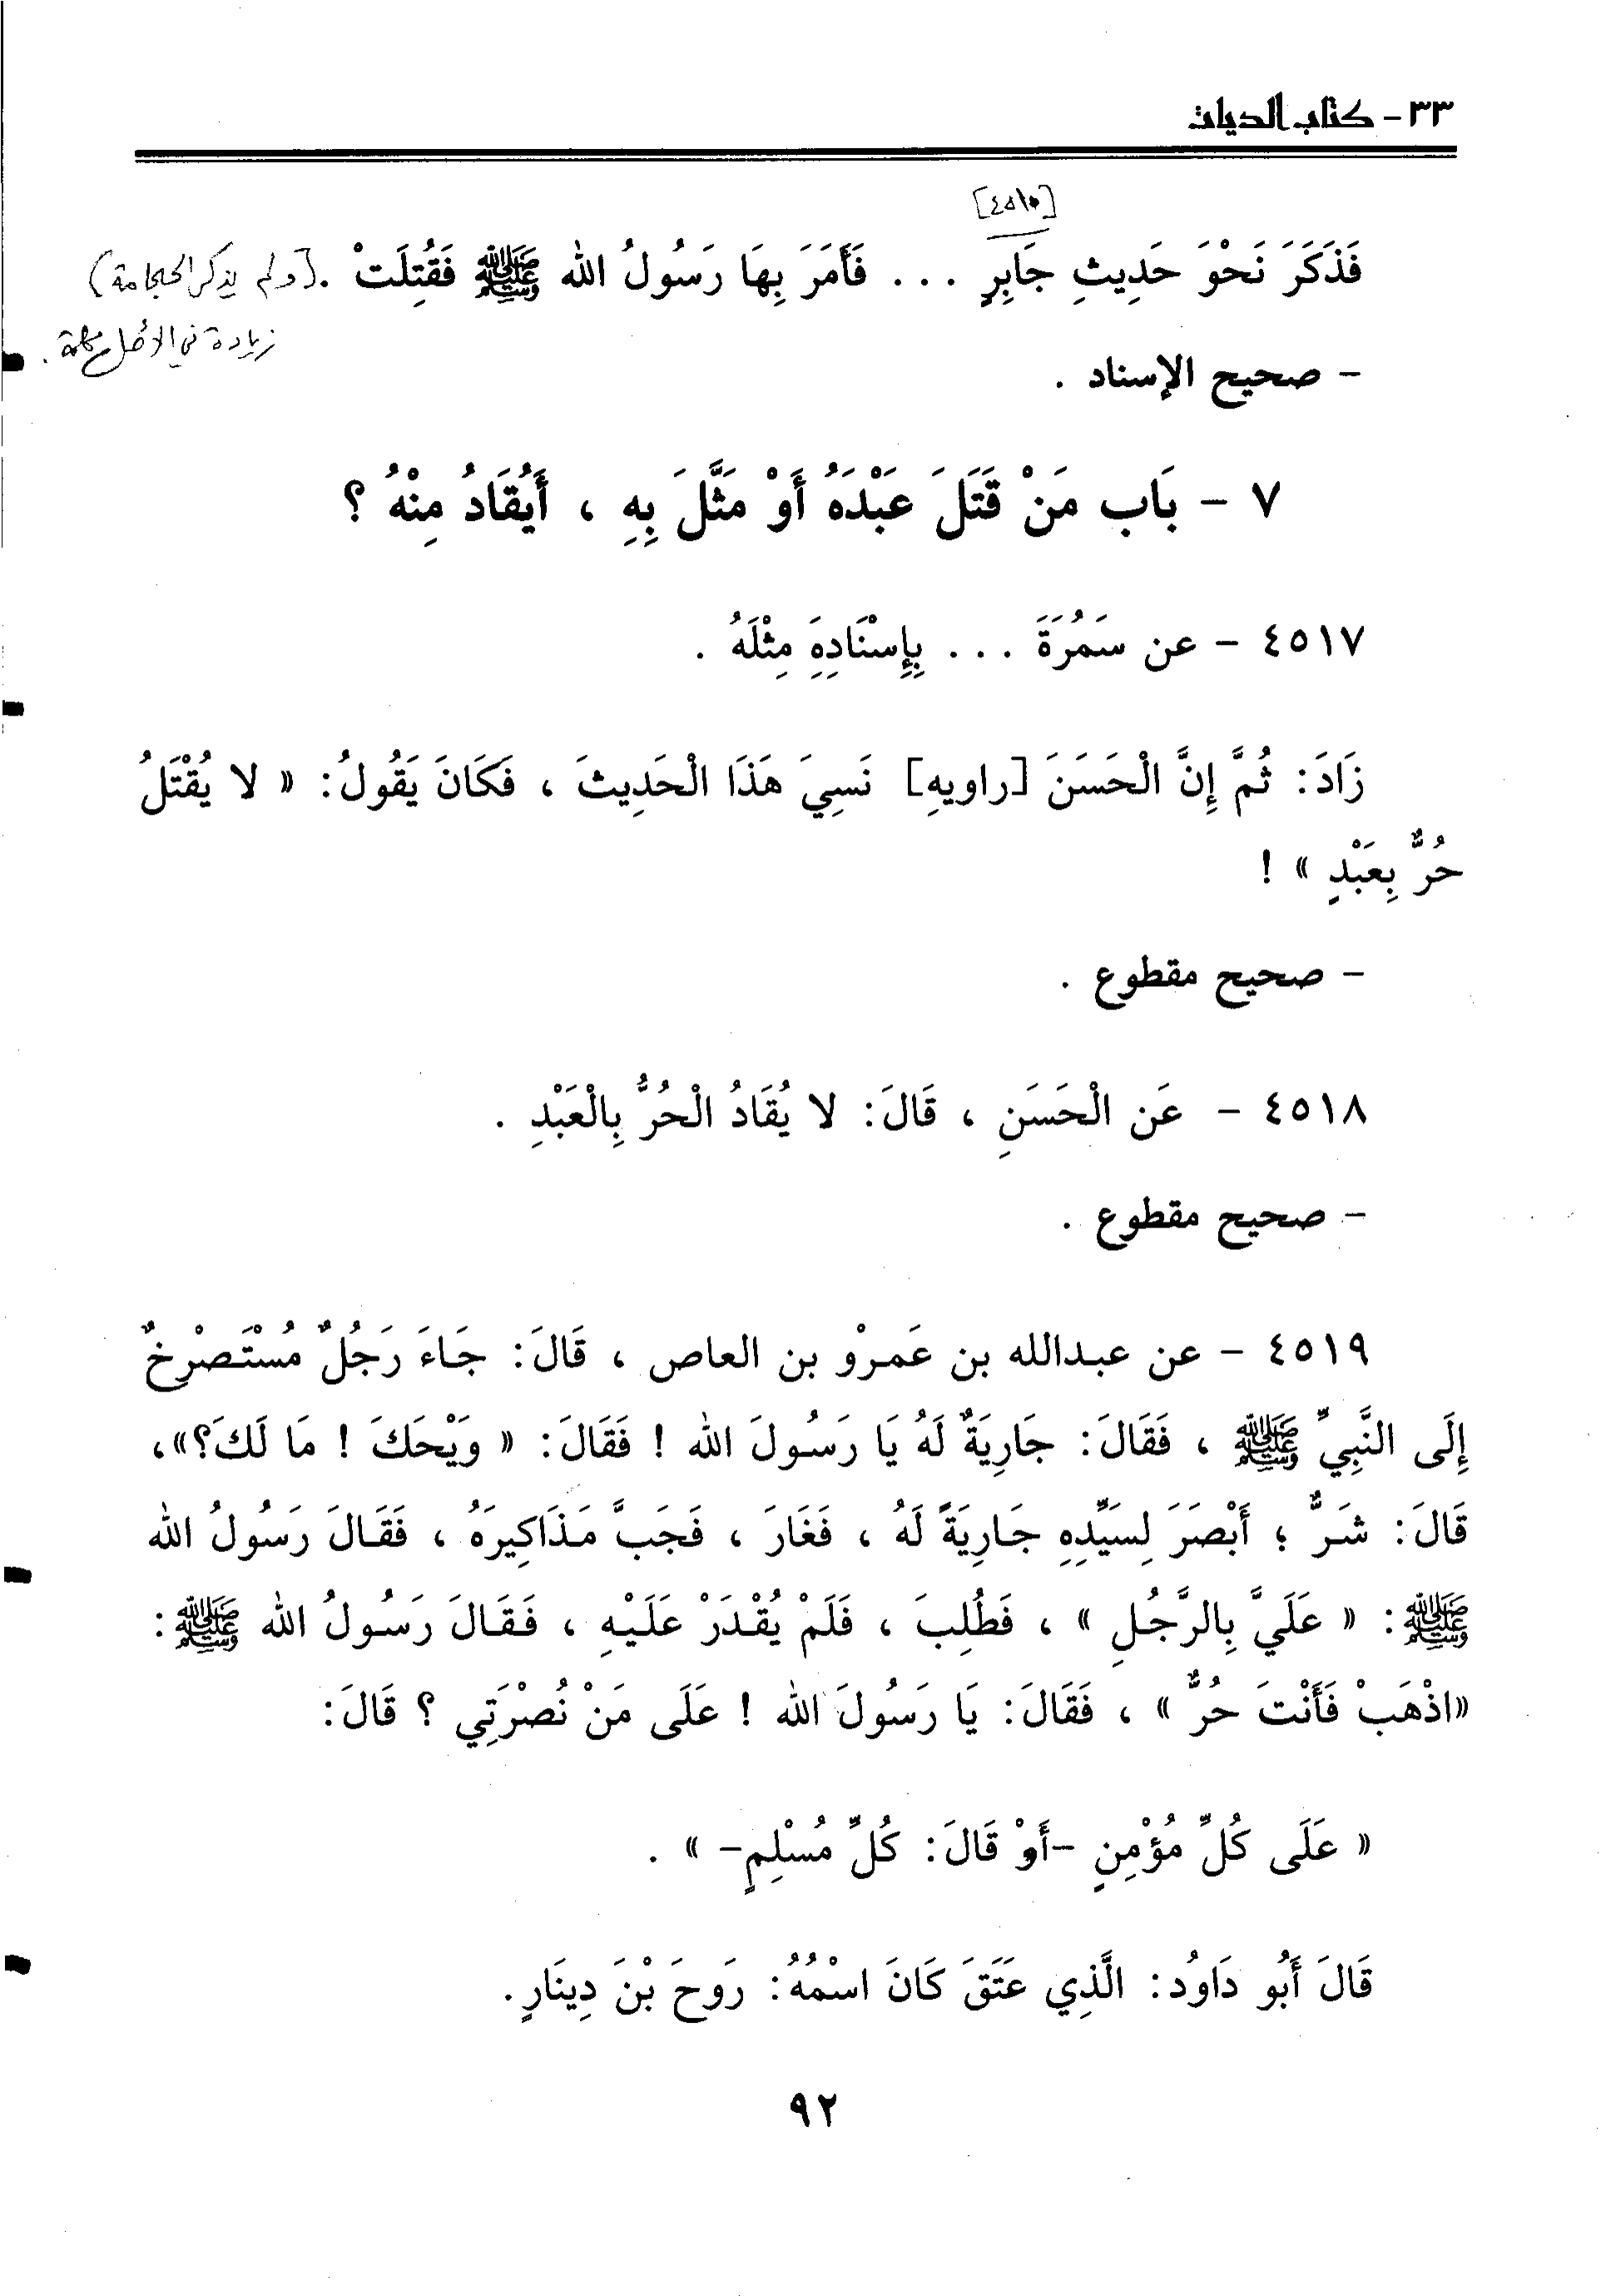 ٣٣ - كتاب الديات
[٤٥١٠]
فَذَكَرَ نَحْوَ حَدِيثِ جَابِرٍ . . . فَأَمَرَ بِهَا رَسُولُ الله ﷺ فَقُتِلَتْ . (ولم يذكر الحجامة)
زيادة في الأصل
- صحيح الإسناد .
٧ - بَاب مَنْ قَتَلَ عَبْدَهُ أَوْ مَثَّلَ بِهِ ، أَيُقَادُ مِنْهُ ؟
٤٥١٧ - عن سَمُرَةَ . . . بِإِسْنَادِهِ مِثْلَهُ .
زَادَ: ثُمَّ إِنَّ الْحَسَنَ [راويهِ] نَسِيَ هَذَا الْحَدِيثَ ، فَكَانَ يَقُولُ: « لا يُقْتَلُ
حُرٌّ بِعَبْدٍ » !
- صحيح مقطوع .
٤٥١٨ - عَن الْحَسَنِ ، قَالَ: لا يُقَادُ الْحُرُّ بِالْعَبْدِ .
- صحيح مقطوع .
٤٥١٩ - عن عبدالله بن عَمرْو بن العاص ، قَالَ: جَاءَ رَجُلٌ مُسْتَصْرِخٌ
إِلَى النَّبِيِّ ﷺ ، فَقَالَ: جَارِيَةٌ لَهُ يَا رَسُولَ الله ! فَقَالَ: « وَيْحَكَ ! مَا لَكَ؟»،
قَالَ: شَرٌّ ؛ أَبْصَرَ لِسَيِّدِهِ جَارِيَةً لَهُ ، فَغَارَ ، فَجَبَّ مَذَاكِيرَهُ ، فَقَالَ رَسُولُ الله
ﷺ: « عَلَيَّ بِالرَّجُلِ » ، فَطُلِبَ ، فَلَمْ يُقْدَرْ عَلَيْهِ ، فَقَالَ رَسُولُ الله ﷺ:
«اذْهَبْ فَأَنْتَ حُرٌّ » ، فَقَالَ: يَا رَسُولَ الله ! عَلَى مَنْ نُصْرَتِي ؟ قَالَ:
« عَلَى كُلِّ مُؤْمِنٍ -أَوْ قَالَ: كُلِّ مُسْلِمٍ- » .
قَالَ أَبُو دَاوُد: الَّذِي عَتَقَ كَانَ اسْمُهُ: رَوحَ بْنَ دِينَارٍ.
٩٢